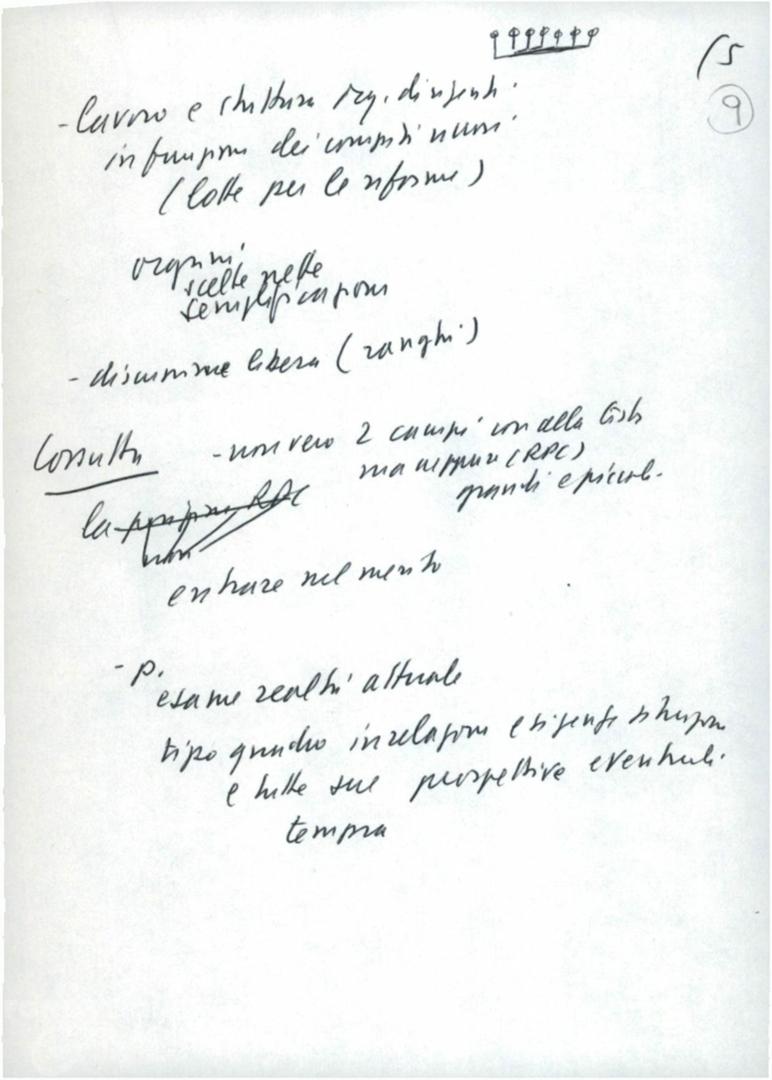 15
9
- lavoro e struttura org. dirigenti
in funzione dei compiti nuovi
(lotte per le riforme)
organi
scelte nette
semplificazioni
- discussione libera (ranghi)
Consulta - non vero 2 campi con alla testa
ma neppure (RPC)
grandi e piccoli.
la
non
entrare nel merito
- P.
esame realtà attuale
tipo quadro in relazione esigenze situazione
e tutte sue prospettive eventuali
tempra